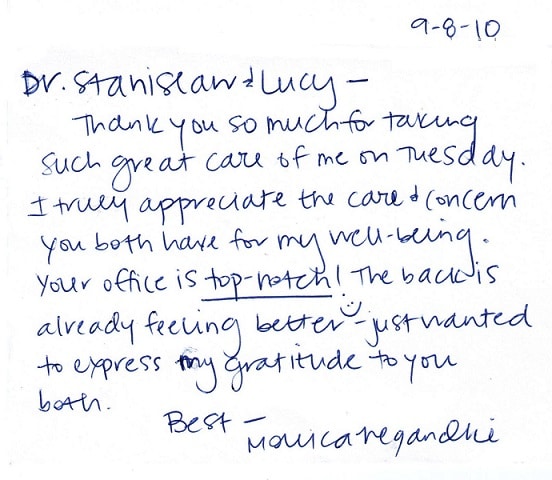 9-8-10
Dr. Stanislaw & Lucy —
Thank you so much for taking
such great care of me on Tuesday.
I truly appreciate the care & concern
you both have for my well-being.
Your office is top-notch! The back is
already feeling better - just wanted
to express my gratitude to you
both.
Best —
Monica